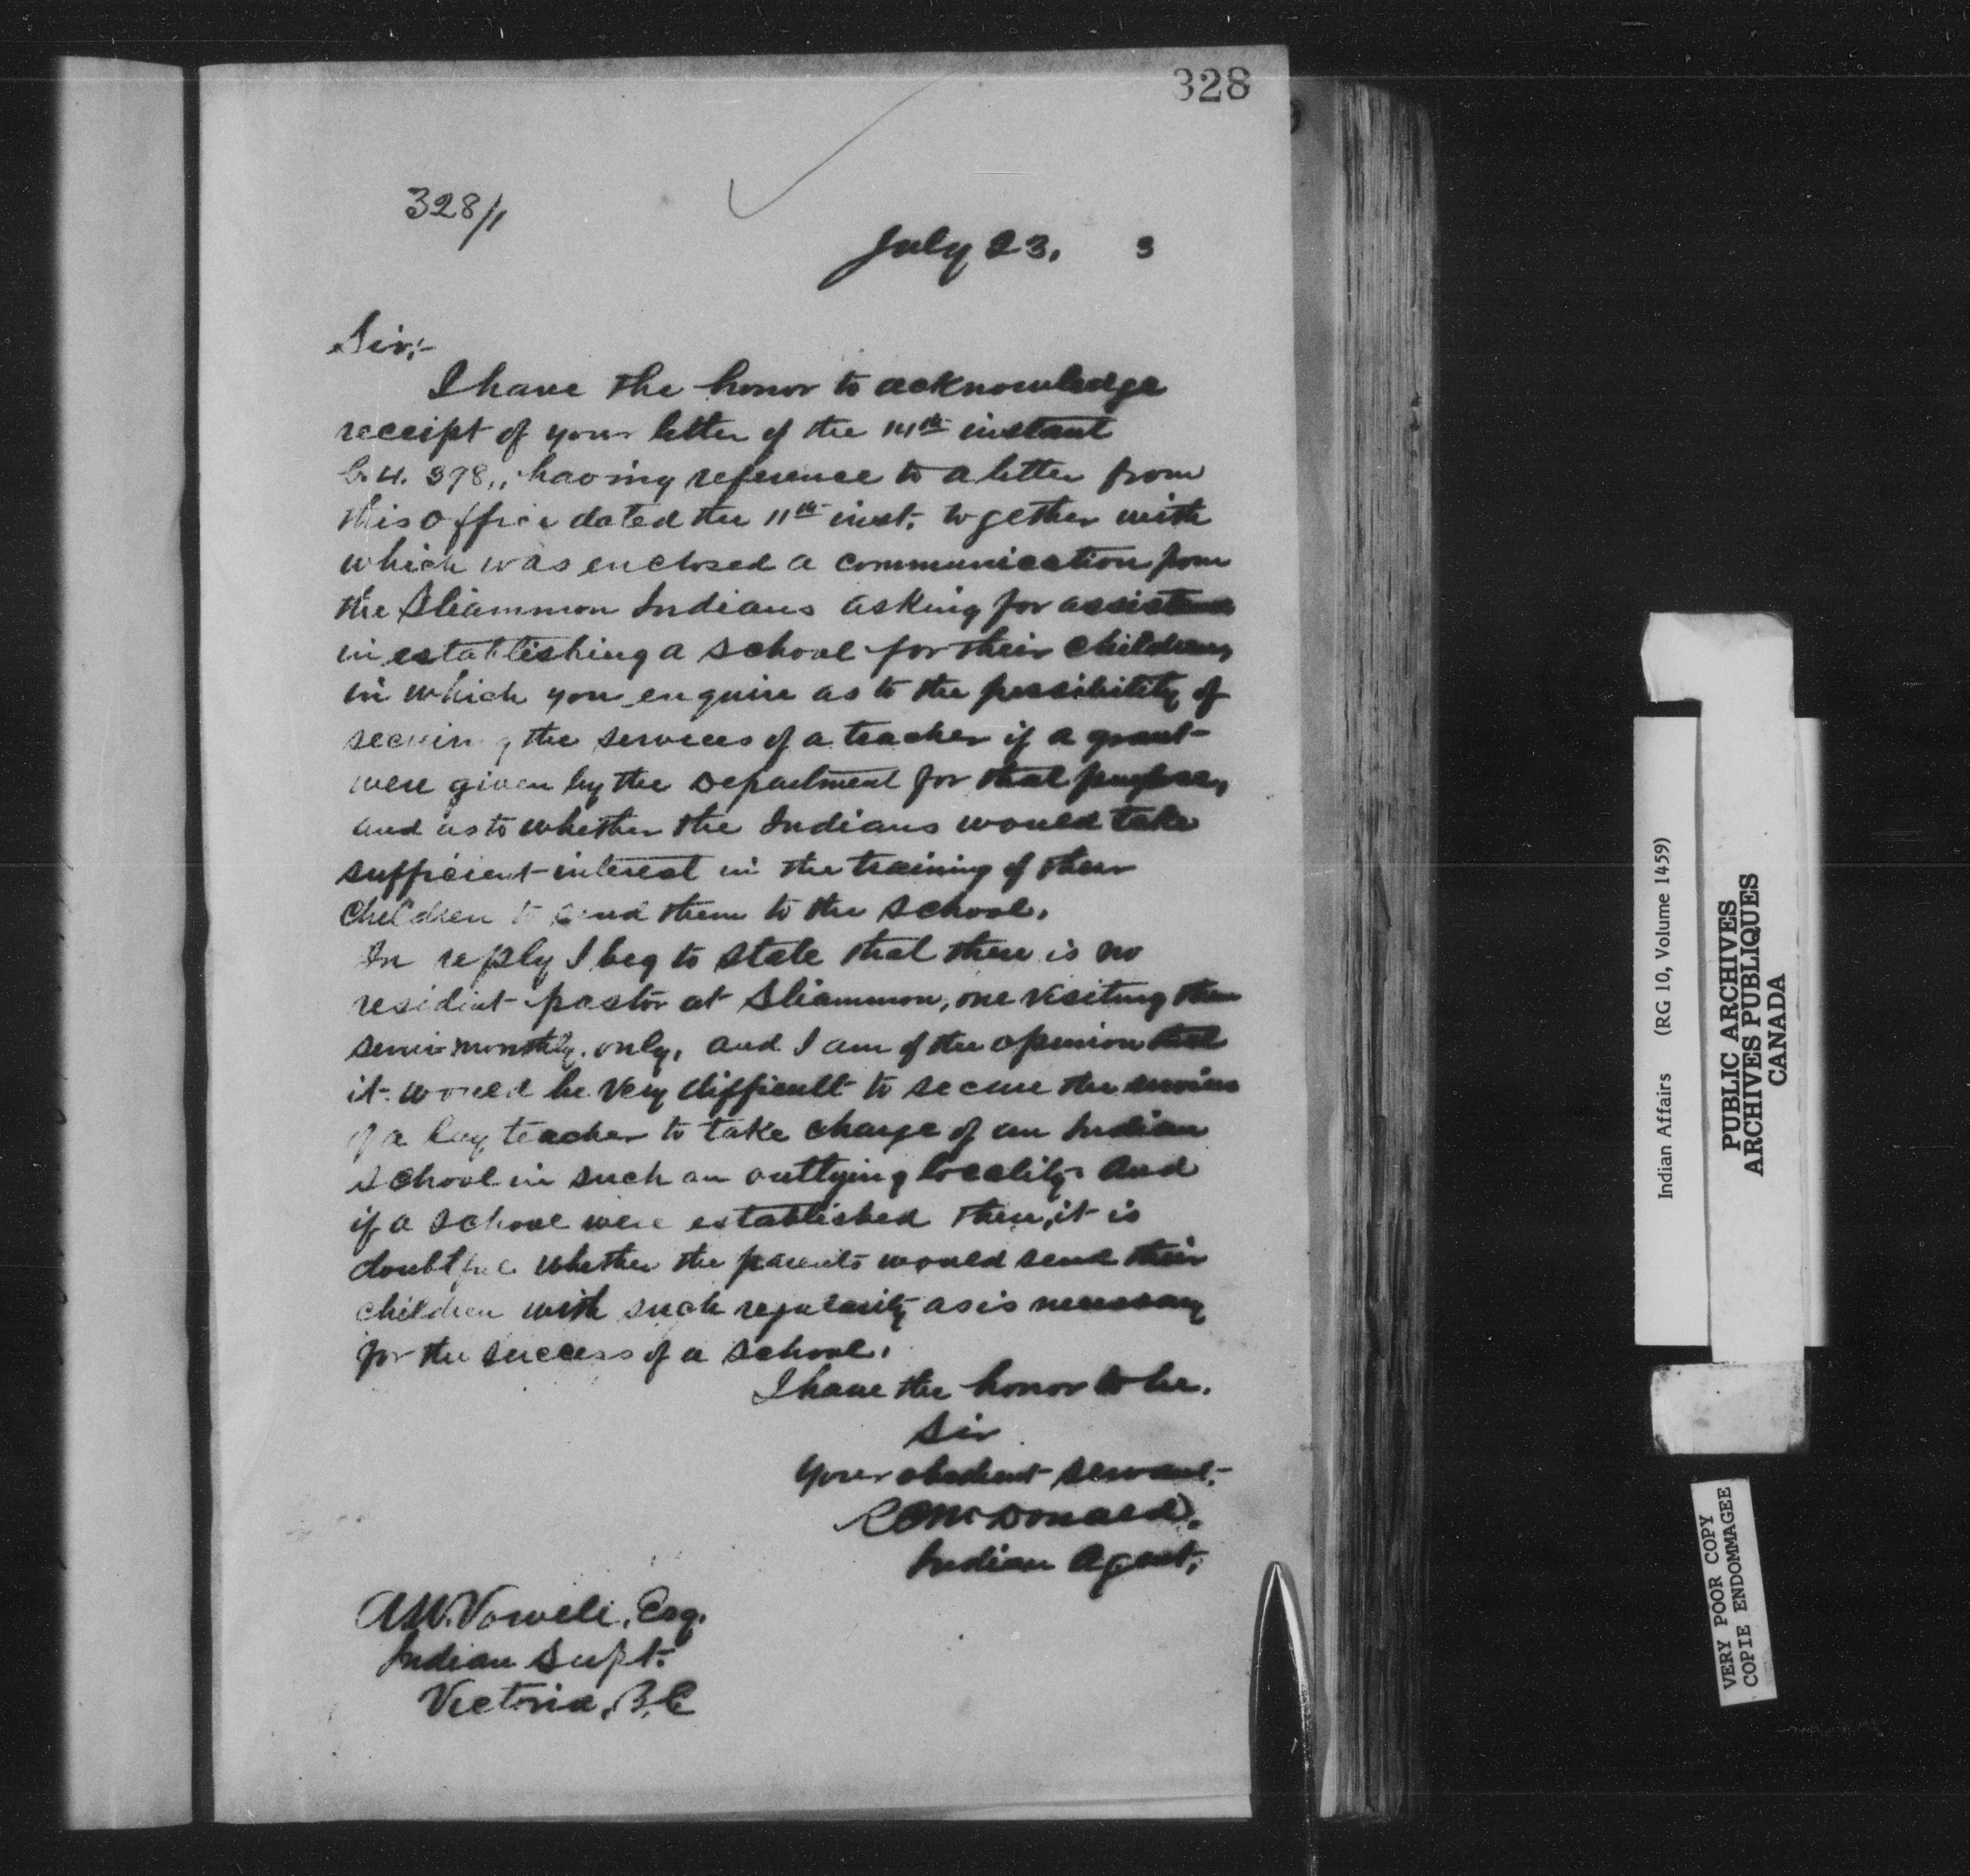 328
328/1
July 23. 3
Sir:-
I have the honor to acknowledge
receipt of your letter of the 14th instant
398,, having reference to a letter from
this office dated the 11th inst. together with
which was enclosed a communication from
the Sliammon Indians asking for assistance
in establishing a school for their children,
in which you enquire as to the possibility of
securing the services of a teacher if a grant
were given by the Department for that purpose,
and as to whether the Indians would take
sufficient interest in the training of their
children to send them to the school.
In reply I beg to state that there is no
resident pastor at Sliammon, one visiting them
semi-monthly only, and I am of the opinion that
it would be very difficult to secure the services
of a lay teacher to take charge of an Indian
school in such an outlying locality. And
if a school were established there, it is
doubtful whether the parents would send their
children with such regularity as is necessary
for the success of a school.
I have the honor to be.
Sir
Your obedient servant.
McDonald.
Indian Agent,
A.W. Vowell, Esq.
Indian Supt.
Victoria, B.C
Indian Affairs (RG 10, Volume 1459)
PUBLIC ARCHIVES
ARCHIVES PUBLIQUES
CANADA
VERY POOR COPY
COPIE ENDOMMAGEE